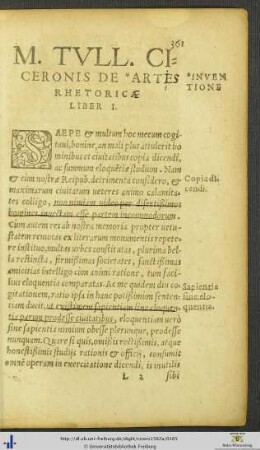 361
M. TVLL. CI-
CERONIS DE *ARTE
*INVEN
TIONE
RHETORICÆ
LIBER I.
SAEPE & multum hoc mecum cogi-
taui, bonine, an mali plus attulerit ho
minibus et ciuitatibus copia dicendi,
ac summum eloquētiæ studium. Nam
& cùm nostræ Reipub. detrimenta considero, &
Copia di-
maximarum ciuitatum veteres animo calamita-
cendi.
tes colligo, non nimiam video per disertissimos
homines inuectam esse partem incommodorum.
Cùm autem res ab nostra memoria propter vetu-
statem remotas ex literarum monumentis repete-
re instituo, multas vrbes constitutas, plurima bel-
la restincta, firmissimas societates, sanctissimas
amicitias intelligo cùm animi ratione, tum faci-
lius eloquentia comparatas. Ac me quidem diu co-
gitationem, ratio ipsa in hanc potissimùm senten-
Sapientia
tiam ducit, ut existimem sapientiam sine eloquen-
sine elo-
tia parum prodesse ciuitatibus, eloquentiam verò
quentia.
sine sapientia nimium obesse plerunque, prodesse
nunquam. Quare si quis, omissis rectissimis, atque
honestissimis studijs rationis & officij, consumit
omnē operam in exercitatione dicendi, is inutilis
L 2
sibi
http://dl.ub.uni-freiburg.de/diglit/cicero1562a/0165
© Universitätsbibliothek Freiburg